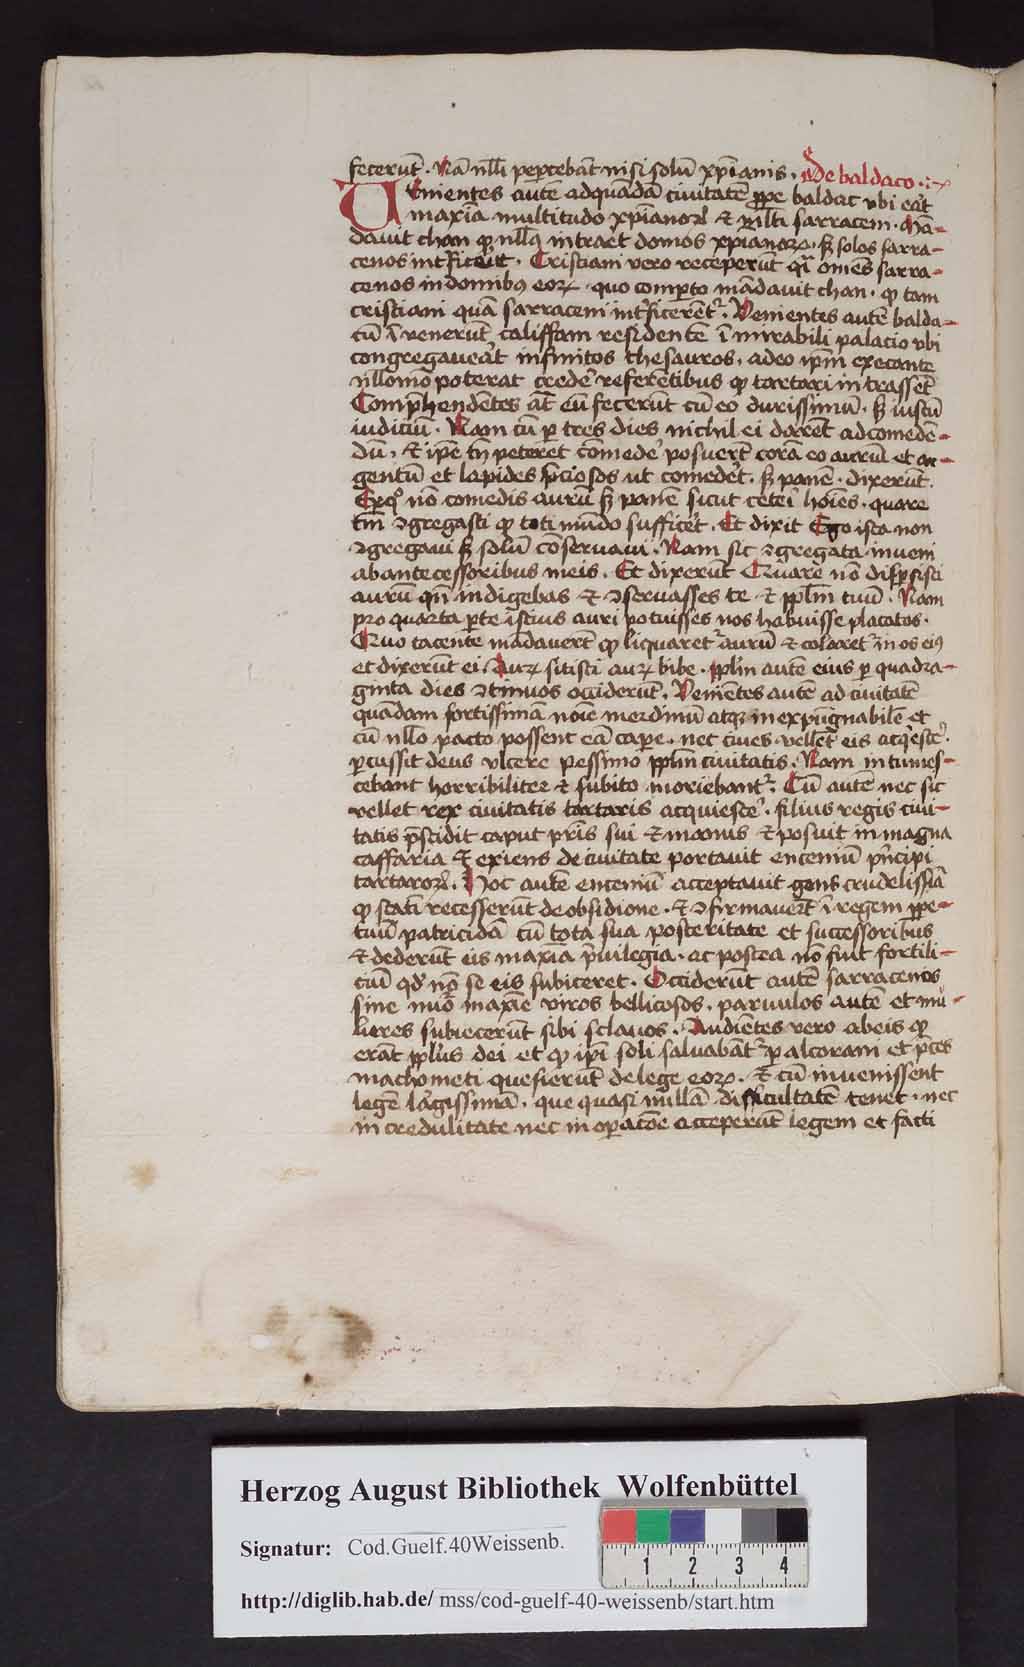 fecerūt. Nā nll̄i pepcebāt nisi solū xp̄ianis. De baldaco
Uenientes autē ad quādā ciuitatē ꝓpe baldac vbi erāt
maxīa multitudo xp̄ianoꝝ et m̄lti sarraceni. Mā-
dauit chan ꝙ nll̄ꝰ intraēt domos xp̄ianoꝝ. sꝫ solos sarra-
cenos int̄ficeēt. Cristiani vero receperūt qͣi om̄es sarra-
cenos in domibꝰ eoꝝ. quo comp̄to mādauit chan. ꝙ tam
cristiani quā sarraceni int̄ficerēt᷑. Venientes autē balda-
cū īvenerūt califfam residentē ī mirabili palacio vbi
congregaueāt infinitos thesauros. adeo ip̄m
nllomō poterat credē referētibus ꝙ tartari intrassēt
Comp̄hendētes at̄ eū fecerūt cū eo durissimū. sꝫ iustū
iudiciū. Nam cū ꝑ tres dies nichil ei darēt ad comedē-
dū. et ip̄e tn̄ peteret comedē posuerūt corā eo aurū et ar-
gentū et lapides p̄ciosos ut comedēt. sꝫ panē. dixerūt.
Ex quo nō comedis aurū sꝫ panē sicut ceteī hoīes. quare
tm̄ ꝯgregasti ꝙ toti mūdo sufficēt. Et dixit Ego ista non
ꝯgregaui sꝫ solū cōseruaui. Nam sic ꝯgregata inueni
ab antecessoribus meis. Et dixerūt Quare nō disp̄sisti
aurū qn̄ indigebas et ꝯseruasses te et pplm̄ tuū. Nam
pro quarta ꝑte istius auri potuisses nos habuisse placatos.
Quo tacente mādauerūt ꝙ liquaret᷑ aurū et colaret᷑ in os eiꝰ
et dixerūt ei. Auꝝ sitisti auꝝ bibe. pplm̄ autē eius ꝑ quadra-
ginta dies ꝯtinuos occiderūt. Venientes autē ad ciuitatē
quādam fortissimā noīe merdinū atqꝫ inexpūgnabilē et
cū nllo pacto possent eā caꝑe. nec ciues vellēt eis acq̄escē.
ꝑcussit deus vlcere pessimo pplm̄ ciuitatis. Nam intumes-
cebant horribiliter et subito moriebant᷑. Cū autē nec sic
vellet rex ciuitatis tartaris acquiescē. filius regis ciui-
tatis p̄scidit caput pr̄is sui et manus et posuit in magna
caffaria et exiens de ciuitate portauit enceniū prīcipi
tartaroꝝ. Hoc autē enceniū acceptauit gens crudelissīa
ꝙ statī recesserūt de obsidione. et ꝯfirmauerūt ī regem ꝓpe-
tuū patricidā cū tota sua posteritate et successoribus
et dederūt eis maxīa p̄uilegia. ac postea nō fuit fortili-
ciū qd̄ nō se eis subiceret. Occiderūt autē sarracenos
sine nūo maxīe viros bellicosos. paruulos autē et mu-
lieres subiecerūt sibi sclauos. Audiētes vero ab eis ꝙ
erāt pplus dei et ꝙ ip̄i soli saluabāt᷑ ꝓ alcorani et p̄ces
machometi quesierūt de lege eoꝝ. et cū inuenissent
legē largissimā. que quasi nullā difficultatē tenet. nec
in credulitate nec in oꝑacōe acceperūt legem et facti
Herzog August Bibliothek Wolfenbüttel
Signatur: Cod.Guelf.40Weissenb.
1 2 3 4
http://diglib.hab.de/ mss/cod-guelf-40-weissenb/start.htm